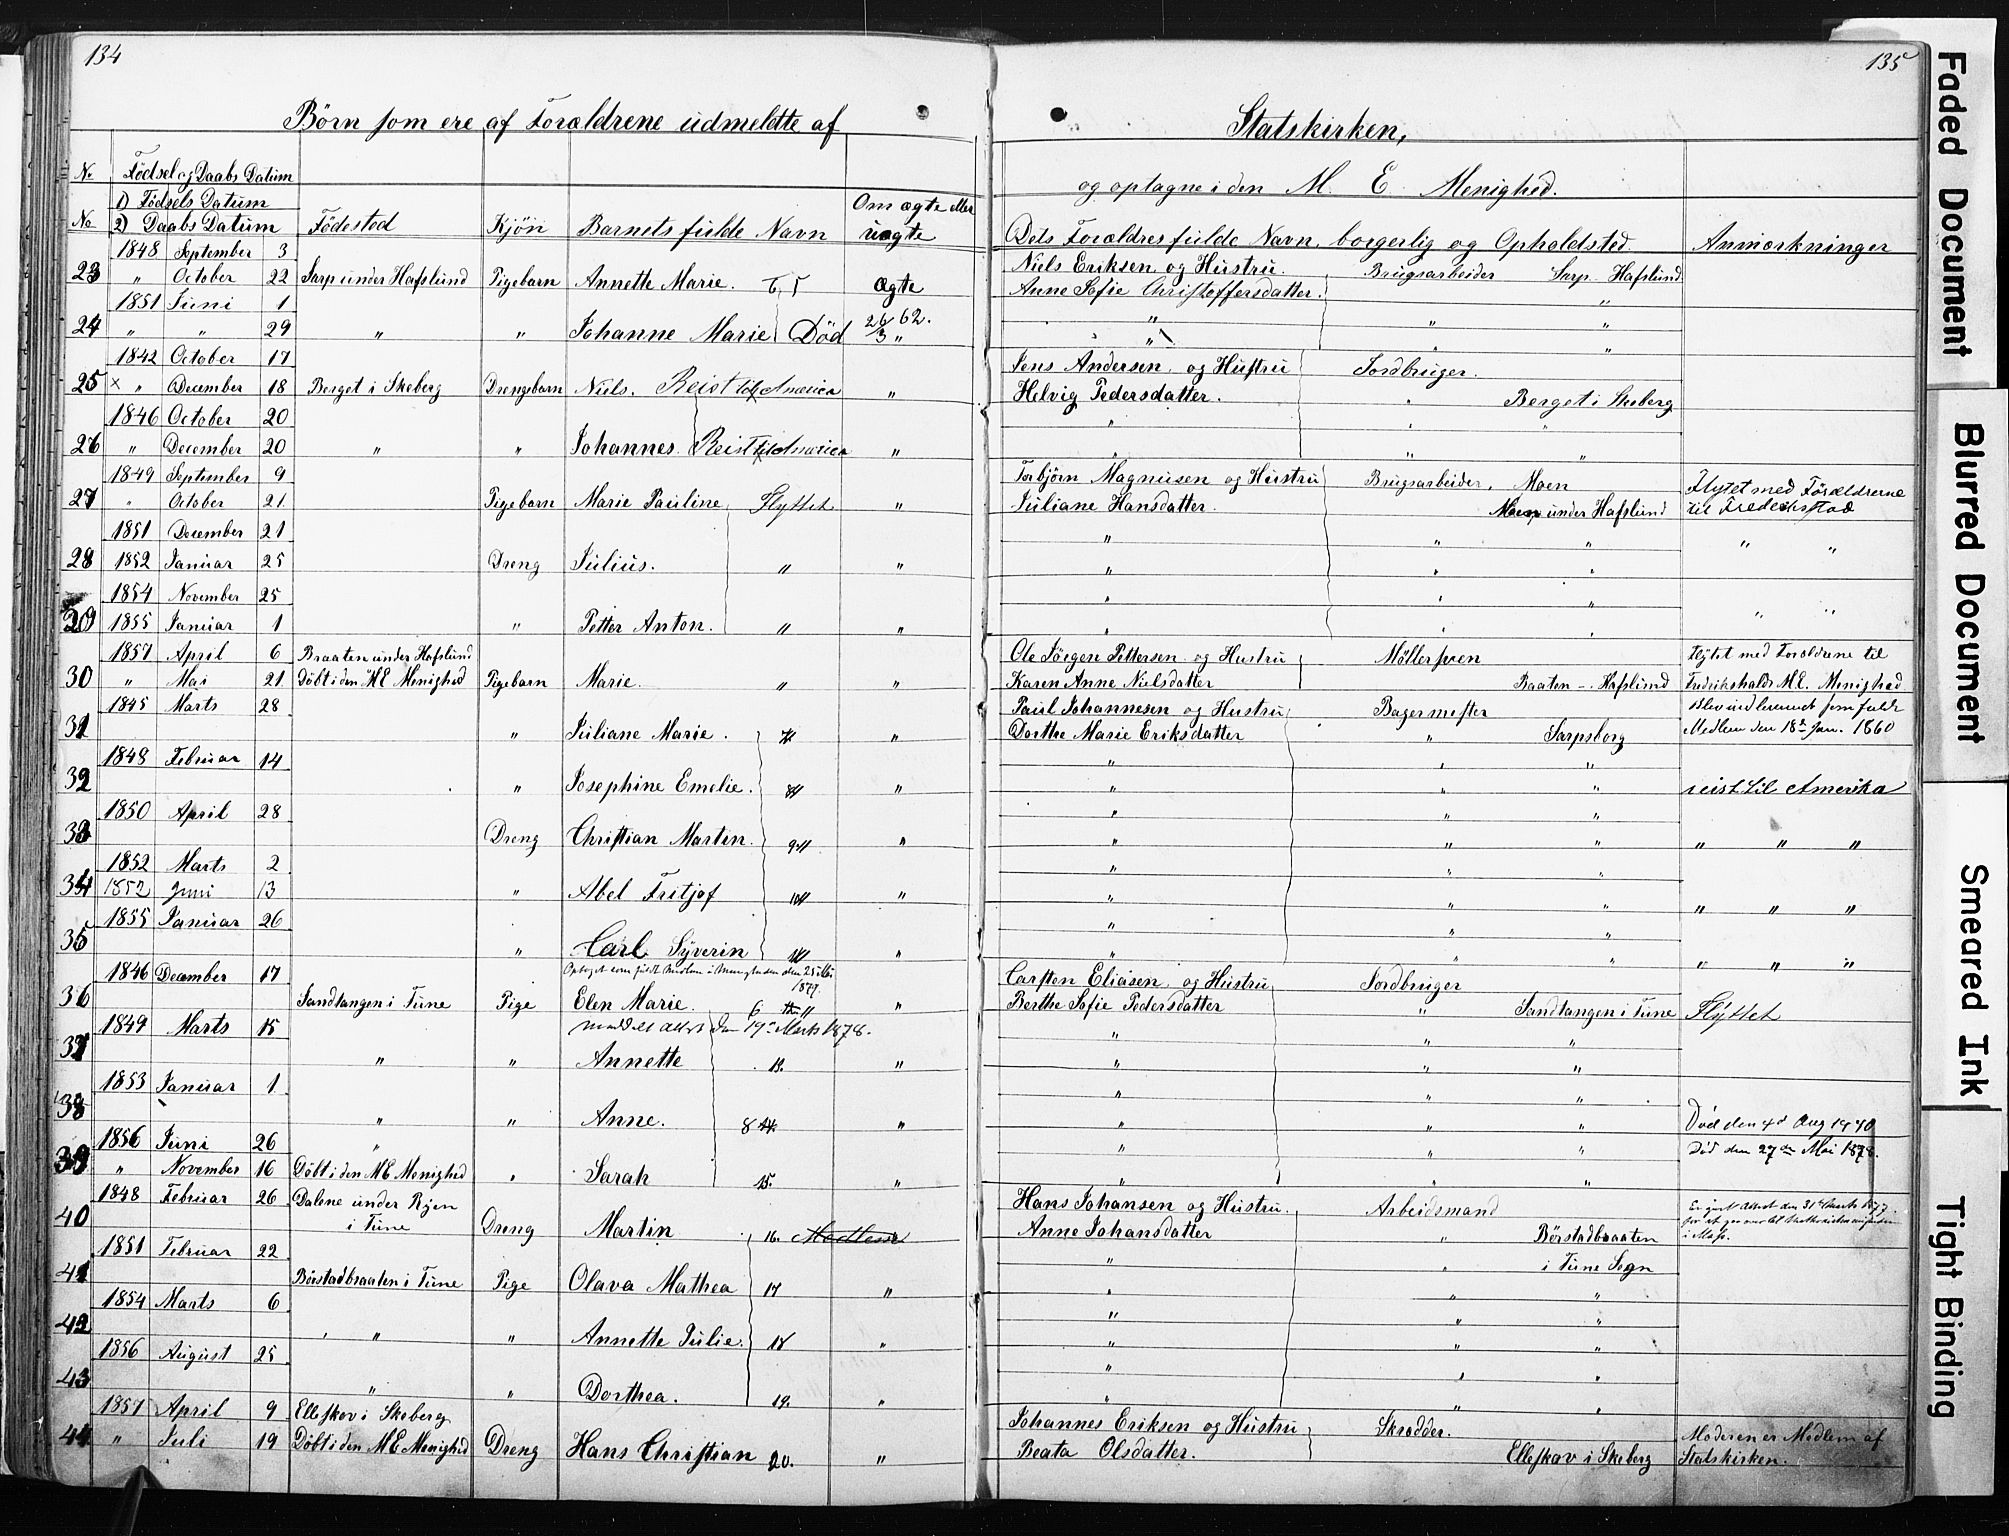 134
Börn som ere af Forældrene udmeldte af
No Födsel og Daabs Datum
1) Födsels Datum
No 2) Daabs Datum Födested Kjön Barnets fulde Navn Om ægte eller uægte
1848 September 3
23 " October 22 Sarp under Hafslund Pigebarn Annette Marie. Ægte
1851 Juni 1
24 " " 29 " " Johanne Marie Död 26/3 62. "
1842 October 17
25 × " December 18 Berget i Skeberg Drengebarn Niels. Reist til America "
1846 October 20
26 " December 20 " " Johannes. Reist til America "
1849 September 9
27 " October 21 Pigebarn Marie Pauline Flyttet "
1851 December 21
28 1852 Januar 25 Dreng Julius. " "
1854 November 25
29 1855 Januar 1 " Petter Anton. " "
1857 April 6 Braaten under Hafslund
30 " Mai 21 Döbt i den M E Menighed Pigebarn Marie. " "
1845 Marts 28
31 " Juliane Marie. "
1848 Februar 14
32 " Josephine Emelie. "
1850 April 28
33 Dreng Christian Martin. "
1852 Marts 2
34 1852 Juni 13 " Abel Fritjof "
1855 Januar 26
35 " Carl Syverin "
1846 December 17 Optaget som fuldt Medlem i Menigheden den 25 Mai 1879.
36 Sandtangen i Tune Pige Elen Marie. 6 "
1849 Marts 15 meddelt Attest den 19de Marts 1878.
37 " " Annette 13. "
1853 Januar 1
38 " " Anne. 8 "
1856 Juni 26 "
39 " November 16 Döbt i den M E Menighed " Sarah 15. "
1848 Februar 26 Dalene under Rjen
40 i Tune Dreng Martin 16. Medlem
1851 Februar 22
41 Börstadbraaten i Tune Pige Olava Mathea 17 "
1854 Marts 6
42 " " Annette Julie. 18 "
1856 August 25
43 " " Dorthea. 19. "
1857 April 9 Elleskov i Skeberg
44 " Juli 19 Döbt i den M E Menighed Dreng Hans Christian 20. "
135
Statskirken,
og optagne i den M. E. Menighed.
Dets Forældres fulde Navn, borgerlig og Opholdsted. Anmærkninger
Niels Eriksen og Hustru. Brugsarbeider Sarp. Hafslund
Anne Sofie Christoffersdatter. "
" " "
" " "
Jens Andersen og Hustru Jordbruger.
Helvig Pedersdatter. " Berget i Skeberg
" " "
" " "
Torbjörn Magnusen og Hustru Brugsarbeider. Moen Flytet med Forældrerne
Juliane Hansdatter. Moen under Hafslund til Frederiksstad
" " " " "
" " "
" " " " "
" " "
Ole Jörgen Pettersen og Hustru Möllersven Flytet med Forældrene til
Karen Anne Nielsdatter Braaten - Hafslund Fredrikshalds M.E. Menighed
Paul Johannesen og Hustru Bagermester Blev indlemmet som fuldt
Dorthe Marie Eriksdatter " Sarpsborg Medlem den 18de Jan. 1860
" " "
" " " reist til Amerika
" " "
" " " " " "
" " "
" " " " " "
" " "
" " " " " "
Carsten Eliasen og Hustru Jordbruger
Berthe Sofie Pedersdatter " Sandtangen i Tune Flyttet
" " "
" " "
" " "
" " " Död den 4d Aug 1940
" " " Död den 27de Mai 1878.
" " "
Hans Johansen og Hustru. Arbeidsmand
Anne Johansdatter " Börstadbraaten i Mass.
" " i Tune Sogn
" " "
" " "
" " "
" " "
" " "
Johannes Eriksen og Hustru Skrædder. Moderen er Medlem af
Beata Olsdatter. Elleskov i Skeberg Statskirken.
Faded Document
Blurred Document
Smeared Ink
Tight Binding